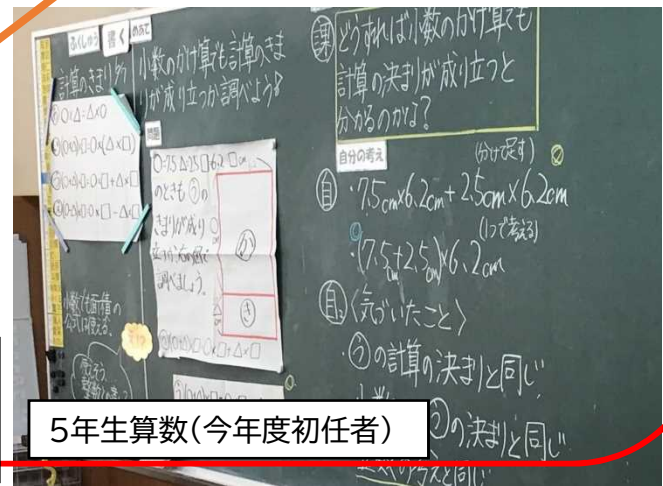 ふくしゅう
計算のきまり
○×△=△×○
小数でも面積の
公式は使える。
書く
めあて
小数のかけ算でも計算のきま
りが成り立つか調べよう。
問題
○=7.5 △=2.5 □=6.2
のときも㋒の
きまりが成り
立つか、右の図で
調べましょう。
か
き
課
どうすれば小数のかけ算でも
計算の決まりが成り立つと
分かるのかな?
自分の考え
(分けて足す)
自
・7.5cm×6.2cm+2.5cm×6.2cm
(1つで考える)
・(7.5cm+2.5cm)×6.2cm
自2
〈気づいたこと〉
・㋒の計算の決まりと同じ
の決まりと同じ
5年生算数(今年度初任者)